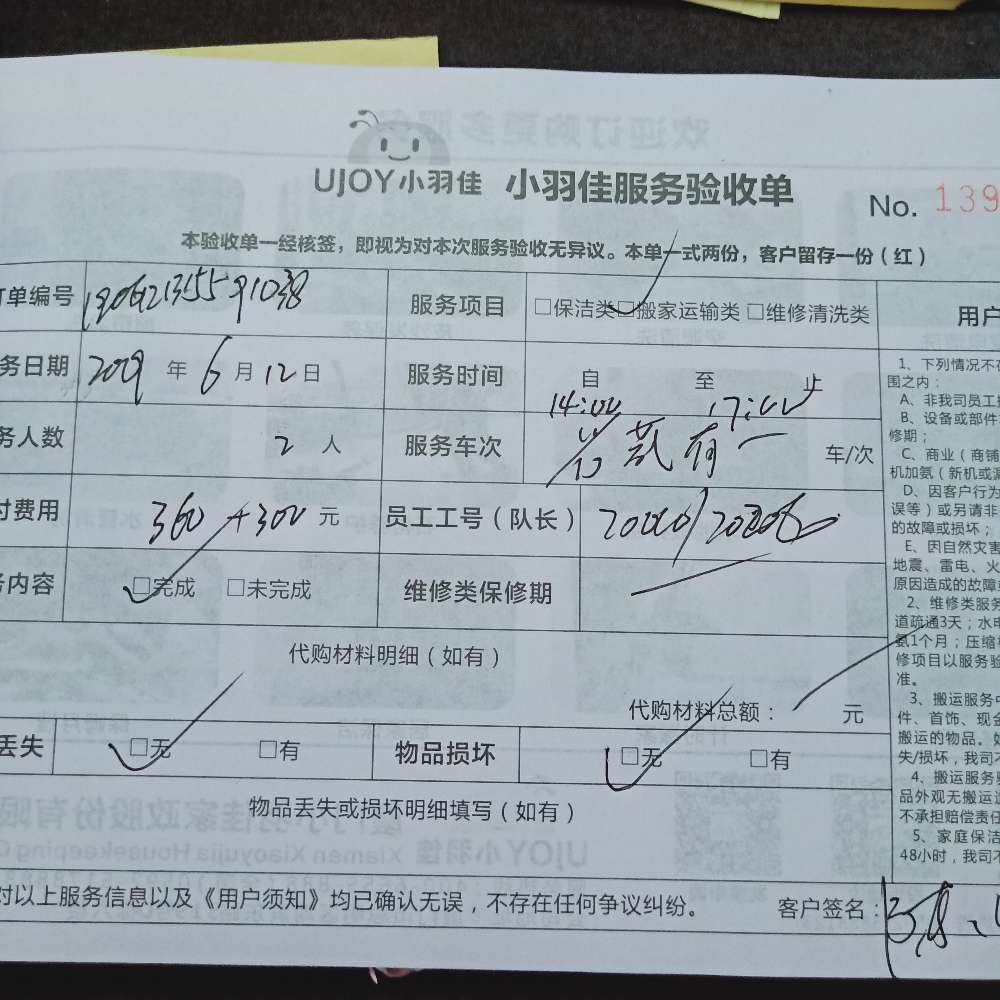 UJOY小羽佳 小羽佳服务验收单
No. 139
本验收单一经核签，即视为对本次服务验收无异议。本单一式两份，客户留存一份（红）
订单编号 服务项目 □保洁类 □搬家运输类 □维修清洗类
务日期 2019 年 6 月 12 日 服务时间 自 14:00 至 17:00 止
务人数 2 人 服务车次 车/次
付费用 360+300 元 员工工号（队长）
务内容 □完成 □未完成 维修类保修期
代购材料明细（如有）
代购材料总额： 元
丢失 □无 □有 物品损坏 □无 □有
物品丢失或损坏明细填写（如有）
对以上服务信息以及《用户须知》均已确认无误，不存在任何争议纠纷。 客户签名：
用户
1、下列情况不在
围之内：
A、非我司员工
B、设备或部件
修期；
C、商业（商铺
机加氨（新机或漏
D、因客户行为
误等）或另请非
的故障或损坏；
E、因自然灾害
地震、雷电、火
原因造成的故障或
2、维修类服务
道疏通3天；水电
氨1个月；压缩
修项目以服务验
准。
3、搬运服务中
件、首饰、现金
搬运的物品。如
失/损坏，我司不
4、搬运服务
品外观无搬运造
不承担赔偿责任
5、家庭保洁
48小时，我司不